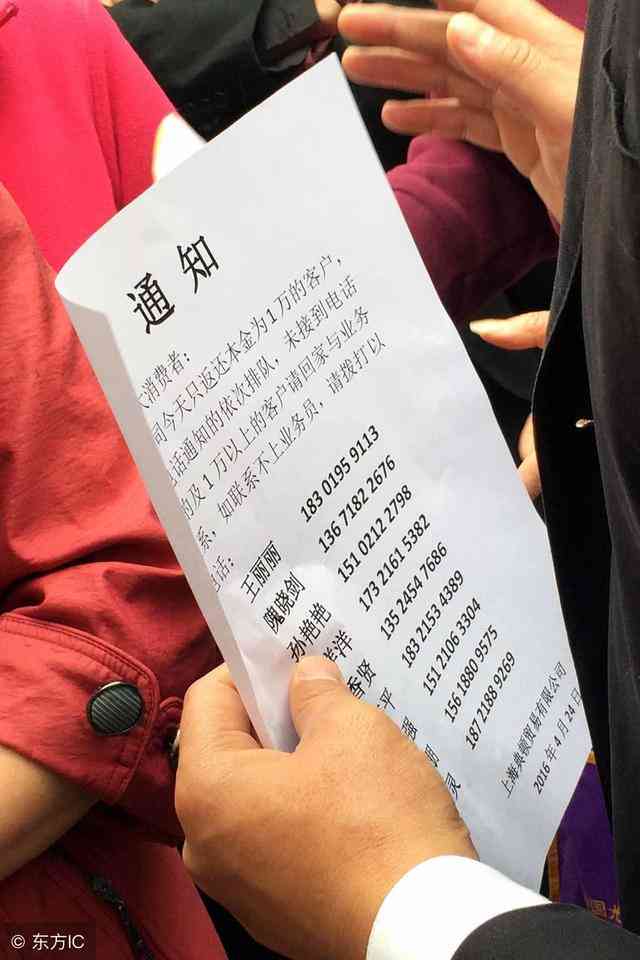 通知
消费者：
司今天只返还本金为1万的客户，
话通知的依次排队，未接到电话
的及1万以上的客户请回家与业务
系，如联系不上业务员，请拨打以
话：
王丽丽 183 0195 9113
隗晓剑 136 7182 2676
孙艳艳 151 0212 2798
洋 173 2161 5382
香贤 135 2454 7686
平 183 2153 4389
强 151 2106 3304
丽 156 1880 9575
灵 187 2188 9269
上海典顿贸易有限公司
2016年4月24日
© 东方IC